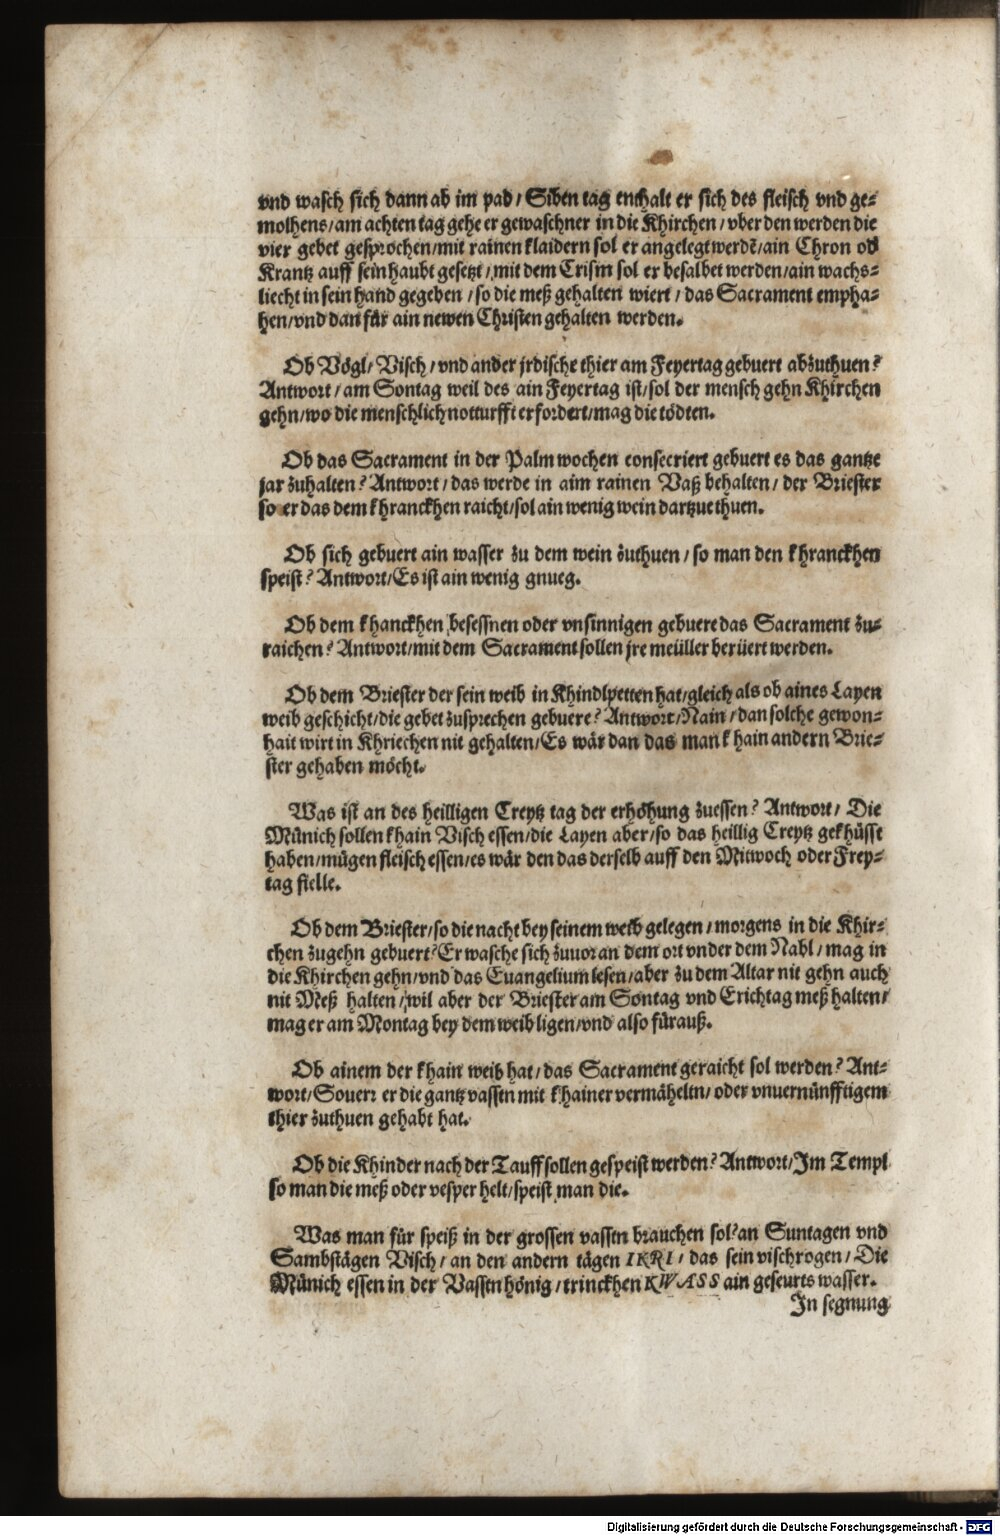 vnd wasch sich dann ab im pad / Siben tag enthalt er sich des fleisch vnd ge⸗
molhens / am achten tag gehe er gewaschner in die Khirchen / vber den werden die
vier gebet gesprochen / mit rainen klaidern sol er angelegt werdē / ain Chron od
Krantz auff sein haubt gesetzt / mit dem Crism sol er besalbet werden / ain wachs⸗
liecht in sein hand gegeben / so die meß gehalten wiert / das Sacrament empha⸗
hen / vnd dan für ain newen Christen gehalten werden.
Ob Vögl / Visch / vnd ander jrdische thier am Feyertag gebuert abzuthuen?
Antwort / am Sontag weil des ain Feyertag ist / sol der mensch gehn Khirchen
gehn / wo die menschlich notturfft erfordert / mag die tödten.
Ob das Sacrament in der Palm wochen consecriert gebuert es das gantze
jar zuhalten? Antwort / das werde in aim rainen Vaß behalten / der Briester
so er das dem khranckhen raicht / sol ain wenig wein dartzue thuen.
Ob sich gebuert ain wasser zu dem wein zuthuen / so man den khranckhen
speist? Antwort / Es ist ain wenig gnueg.
Ob dem khanckhen besessnen oder vnsinnigen gebuere das Sacrament zu⸗
raichen? Antwort / mit dem Sacrament sollen jre meüller berüert werden.
Ob dem Briester der sein weib in Khindlpetten hat / gleich als ob aines Layen
weib geschicht / die gebet zusprechen gebuere? Antwort / Nain / dan solche gewon⸗
hait wirt in Khriechen nit gehalten / Es wär dan das man khain andern Brie⸗
ster gehaben möcht.
Was ist an des heilligen Creytz tag der erhöhung zuessen? Antwort / Die
Münich sollen khain Visch essen / die Layen aber / so das heillig Creytz gekhüsst
haben / mügen fleisch essen / es wär den das derselb auff den Mitwoch oder Frey⸗
tag fielle.
Ob dem Briester / so die nacht bey seinem weib gelegen / morgens in die Khir⸗
chen zugehn gebuert? Er wasche sich zuuor an dem ort vnder dem Nabl / mag in
die Khirchen gehn / vnd das Euangelium lesen / aber zu dem Altar nit gehn auch
nit Meß halten / wil aber der Briester am Sontag vnd Erichtag meß halten /
mag er am Montag bey dem weib ligen / vnd also fürauß.
Ob ainem der khain weib hat / das Sacrament geraicht sol werden? Ant⸗
wort / Souerr er die gantz vassten mit khainer vermähelten / oder vnuernünfftigem
thier zuthuen gehabt hat.
Ob die Khinder nach der Tauff sollen gespeist werden? Antwort / Im Templ
so man die meß oder vesper helt / speist man die.
Was man für speiß in der grossen vassten brauchen sol? an Suntagen vnd
Sambstägen Visch / an den andern tägen IKRI / das sein vischrogen / Die
Münich essen in der Vassten hönig / trinckhen KWASS ain geseurts wasser.
In segnung
Digitalisierung gefördert durch die Deutsche Forschungsgemeinschaft - DFG